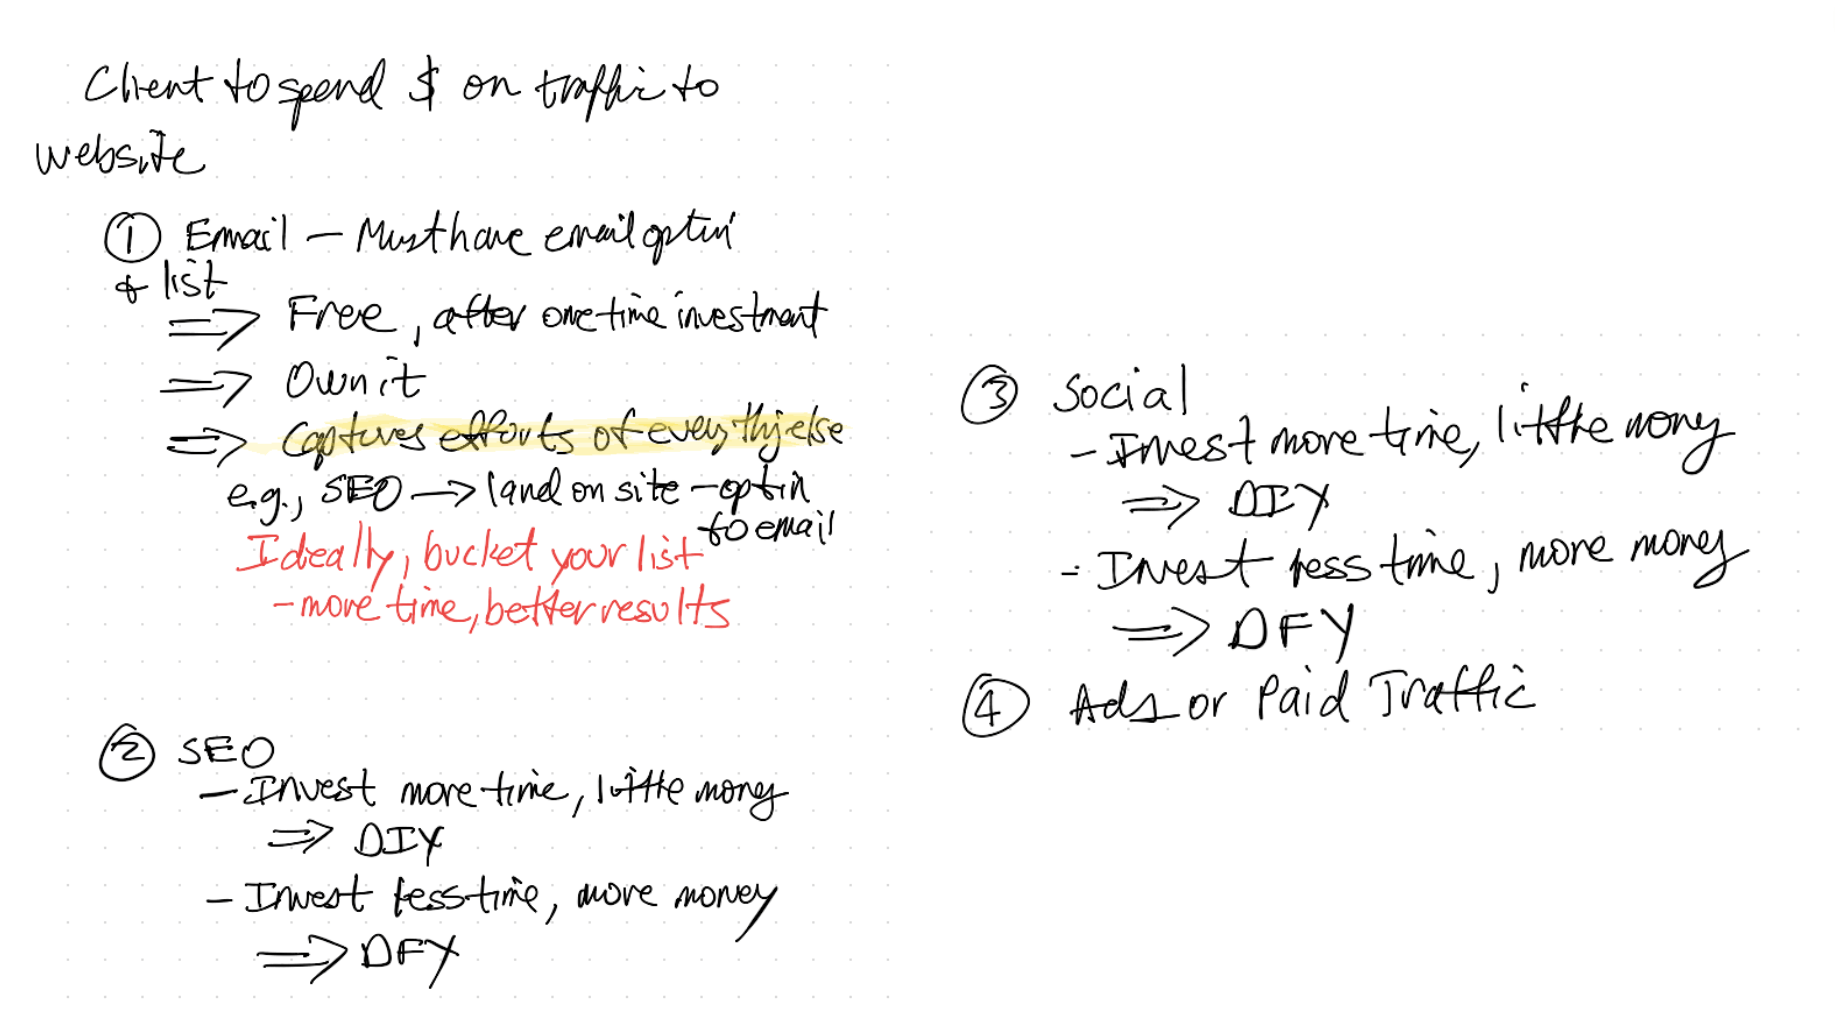 Client to spend $ on traffic to
website
① Email — Must have email optin
& list
⇒ Free, after one time investment
⇒ Own it
⇒ Captures efforts of everything else
e.g., SEO → land on site — optin
to email
Ideally, bucket your list
- more time, better results
② SEO
- Invest more time, little money
⇒ DIY
- Invest less time, more money
⇒ DFY
③ Social
- Invest more time, little money
⇒ DIY
- Invest less time, more money
⇒ DFY
④ Ads or Paid Traffic